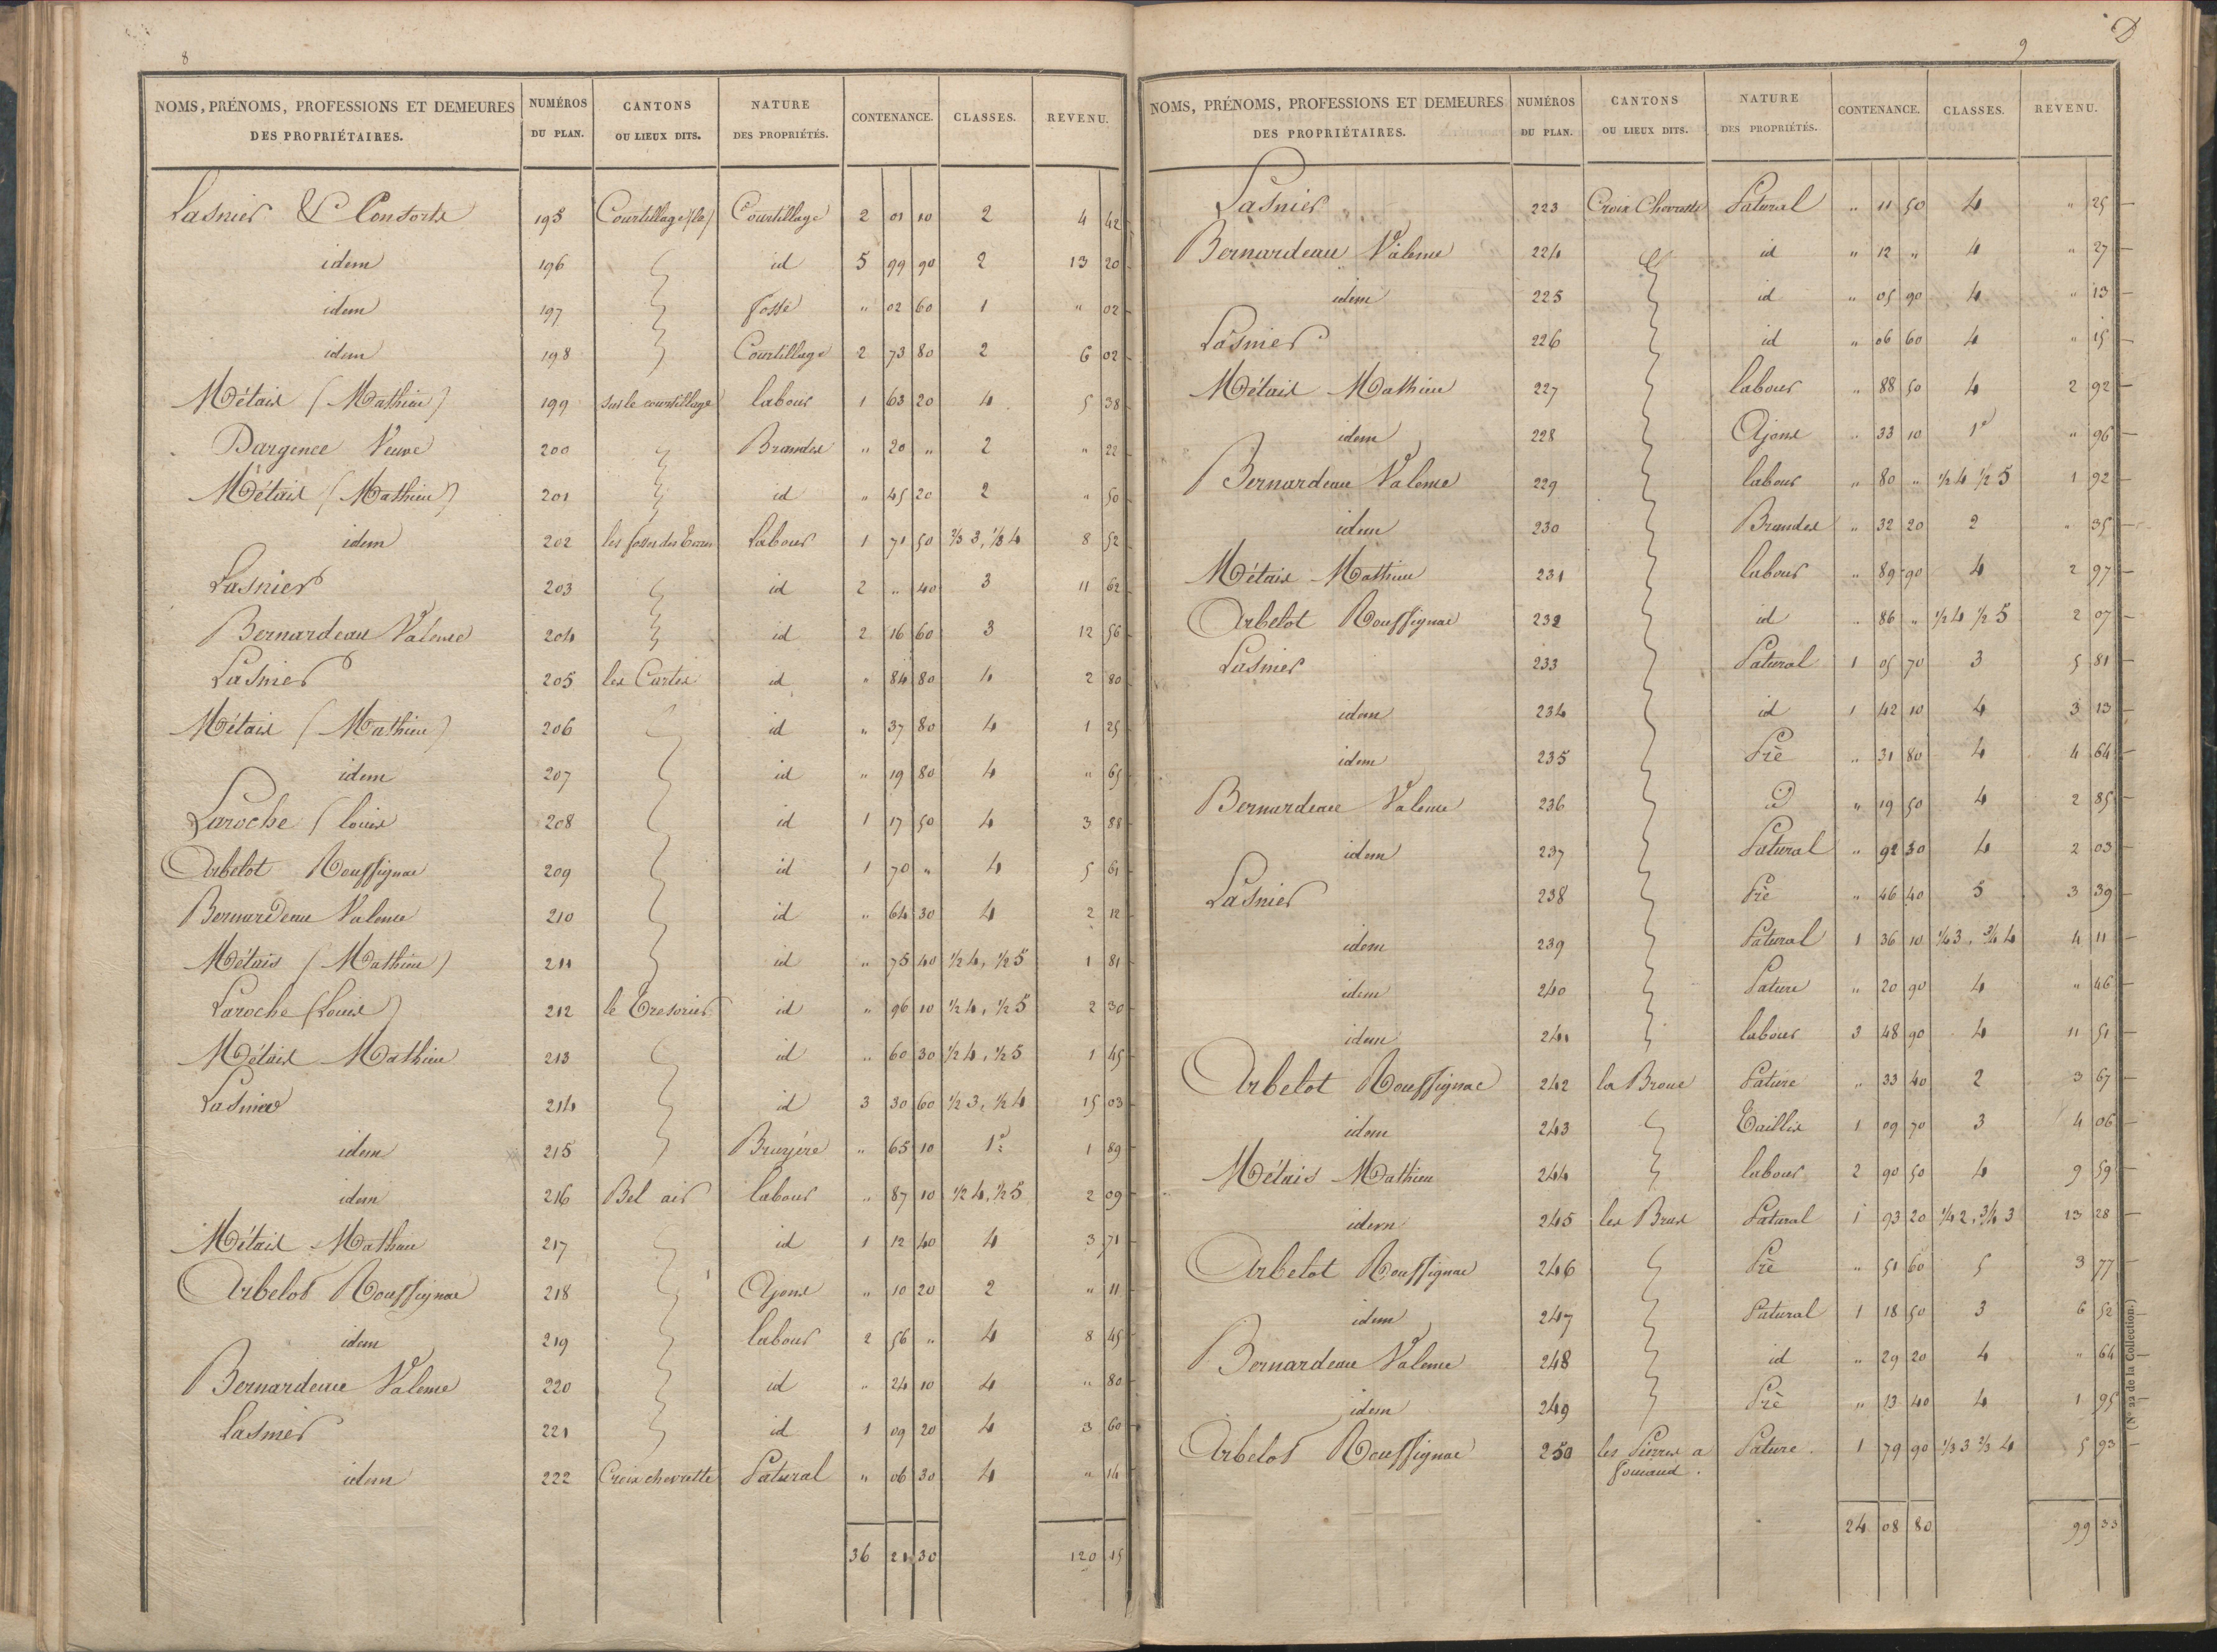 8
NOMS, PRÉNOMS, PROFESSIONS ET DEMEURES DES PROPRIÉTAIRES. NUMÉROS DU PLAN. CANTONS OU LIEUX DITS. NATURE DES PROPRIÉTÉS. CONTENANCE. CLASSES. REVENU.
Lasnier & Consorts 195 Courtillage (le) Courtillage 2 01 10 2 4 42
idem 196 id 5 99 90 2 13 20
idem 197 fossé " 02 60 1 " 02
idem 198 Courtillage 2 73 80 2 6 02
Métais (Mathieu) 199 sur le courtillage labour 1 63 20 4 5 38
Dargence Veuve 200 Brandes " 20 " 2 " 22
Métais (Mathieu) 201 id " 45 20 2 " 50
idem 202 les fosses des Labour 1 71 50 2/3 3, 1/3 4 8 52
Lasnier 203 id 2 " 40 3 11 62
Bernardeau Valence 204 id 2 16 60 3 12 56
Lasnier 205 les id " 84 80 4 2 80
Métais (Mathieu) 206 id " 37 80 4 1 25
idem 207 id " 19 80 4 " 65
Laroche (louis 208 id 1 17 50 4 3 88
Arbelot Rouffignac 209 id 1 70 " 4 5 61
Bernardeau Valence 210 id " 64 30 4 2 12
Métais (Mathieu) 211 id " 75 40 1/2 4, 1/2 5 1 81
Laroche (Louis) 212 le Tresorier id " 96 10 1/2 4, 1/2 5 2 30
Métais Mathieu 213 id " 60 30 1/2 4, 1/2 5 1 45
Lasnier 214 id 3 30 60 1/2 3, 1/2 4 15 03
idem 215 Bruyère " 65 10 1e 1 89
idem 216 Bel air labour " 87 10 1/2 4, 1/2 5 2 09
Métais Mathieu 217 id 1 12 40 4 3 71
Arbelot Rouffignac 218 Ajons " 10 20 2 " 11
idem 219 labour 2 56 " 4 8 45
Bernardeau Valence 220 id " 24 10 4 " 80
Lasnier 221 id 1 09 20 4 3 60
idem 222 Croix chevrette Patural " 06 30 4 " 14
36 21 30 120 15
9
NOMS, PRÉNOMS, PROFESSIONS ET DEMEURES DES PROPRIÉTAIRES. NUMÉROS DU PLAN. CANTONS OU LIEUX DITS. NATURE DES PROPRIÉTÉS. CONTENANCE. CLASSES. REVENU.
Lasnier 223 Croix Chevrette Patural " 11 50 4 " 25
Bernardeau Valence 224 id " 12 " 4 " 27
idem 225 id " 05 90 4 " 13
Lasnier 226 id " 06 60 4 " 15
Métais Mathieu 227 labour " 88 50 4 2 92
idem 228 Ajons " 33 10 1e " 96
Bernardeau Valence 229 labour " 80 " 1/2 4 1/2 5 1 92
idem 230 Brandes " 32 20 2 " 35
Métais Mathieu 231 labour " 89 90 4 2 97
Arbelot Rouffignac 232 id " 86 " 1/2 4 1/2 5 2 07
Lasnier 233 Patural 1 05 70 3 5 81
idem 234 id 1 42 10 4 3 13
idem 235 Pré " 31 80 4 4 64
Bernardeau Valence 236 id " 19 50 4 2 85
idem 237 Patural " 92 30 4 2 03
Lasnier 238 Pré " 46 40 5 3 39
idem 239 Patural 1 36 10 1/4 3, 3/4 4 4 11
idem 240 Pature " 20 90 4 " 46
idem 241 labour 3 48 90 4 11 51
Arbelot Rouffignac 242 la Broue Pature " 33 40 2 3 67
idem 243 Taillis 1 09 70 3 4 06
Métais Mathieu 244 labour 2 90 50 4 9 59
idem 245 les Brus Patural 1 93 20 1/4 2, 3/4 3 13 28
Arbelot Rouffignac 246 Pré " 51 60 5 3 77
idem 247 Patural 1 18 50 3 6 52
Bernardeau Valence 248 id " 29 20 4 " 64
idem 249 Pré " 13 40 4 1 95
Arbelot Rouffignac 250 les Pierres a Pature 1 79 90 1/3 3 2/3 4 5 93
24 08 80 99 33
(N° 22 de la Collection.)